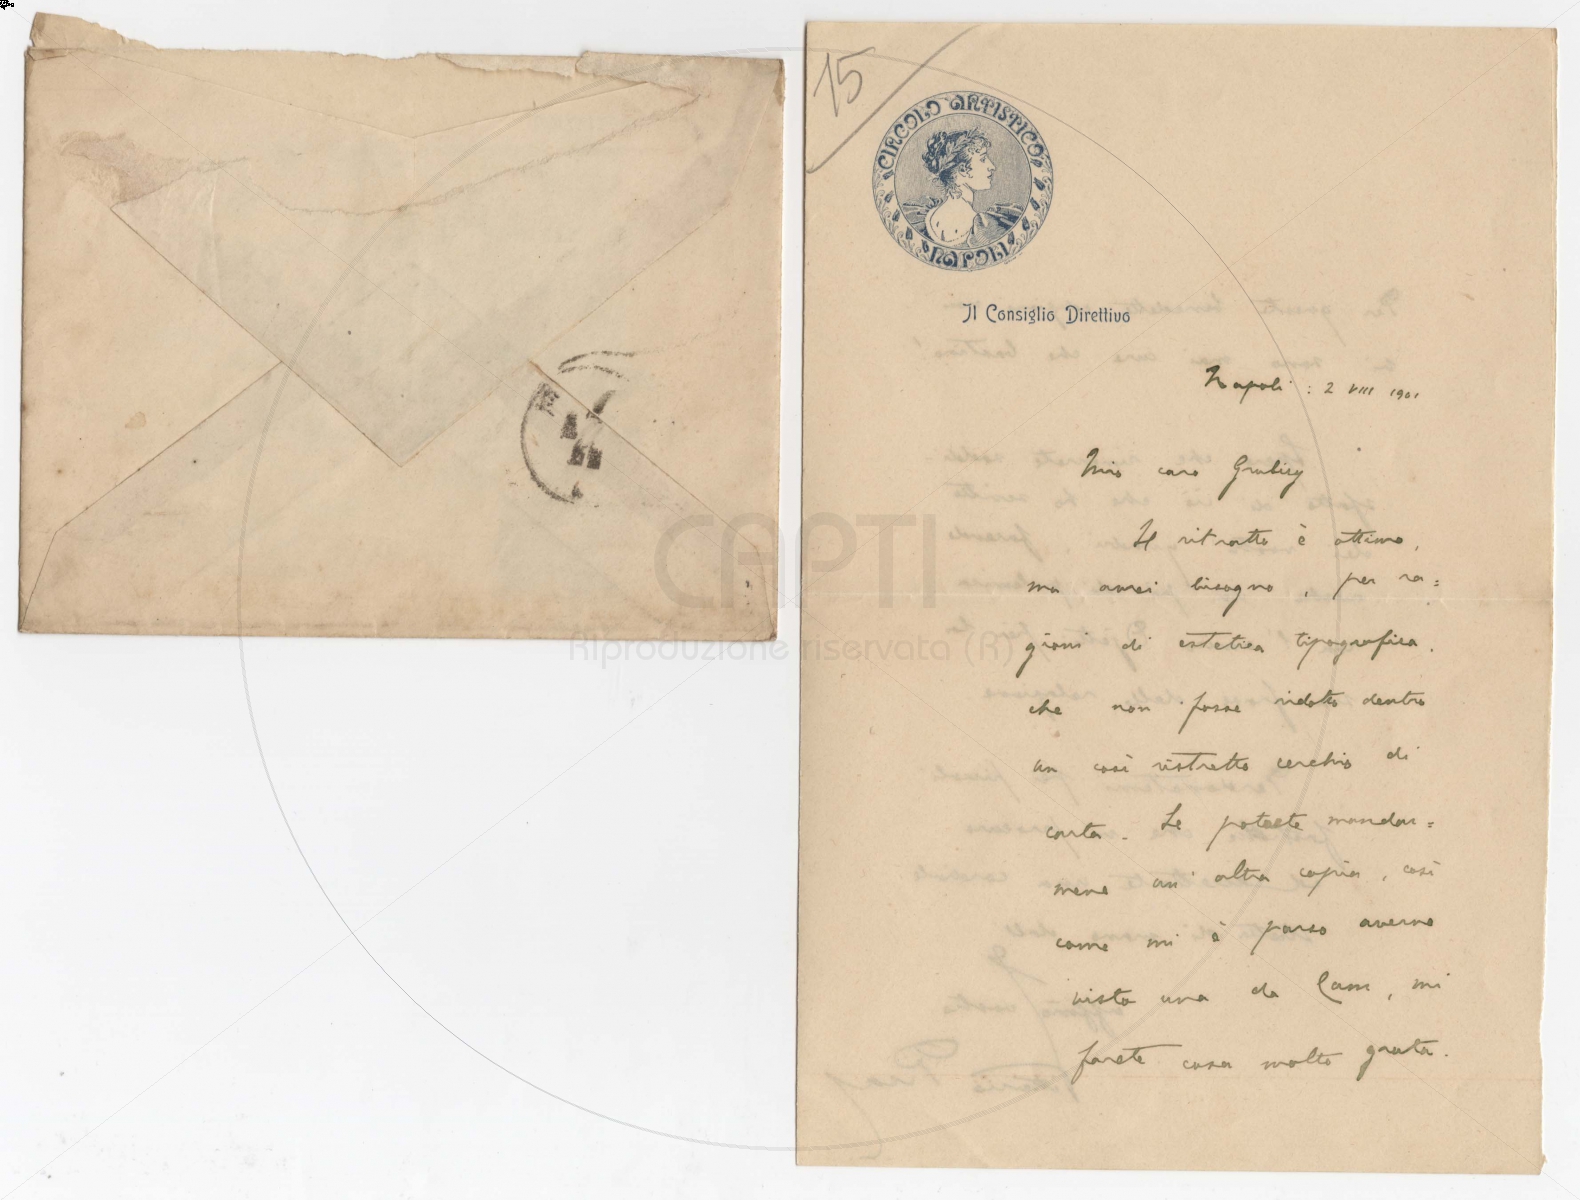 15
CIRCOLO ARTISTICO
NAPOLI
Il Consiglio Direttivo
Napoli : 2 VIII 1901
Mio caro Grubicy
Il ritratto è ottimo,
ma avrei bisogno, per ra=
gioni di estetica tipografica,
che non fosse ridotto dentro
un così ristretto cerchio di
carta. Se poteste mandar=
mene un' altra copia, così
come mi è parso averne
vista una da , mi
farete cosa molto grata.
CAPTI
Riproduzione riservata (R)